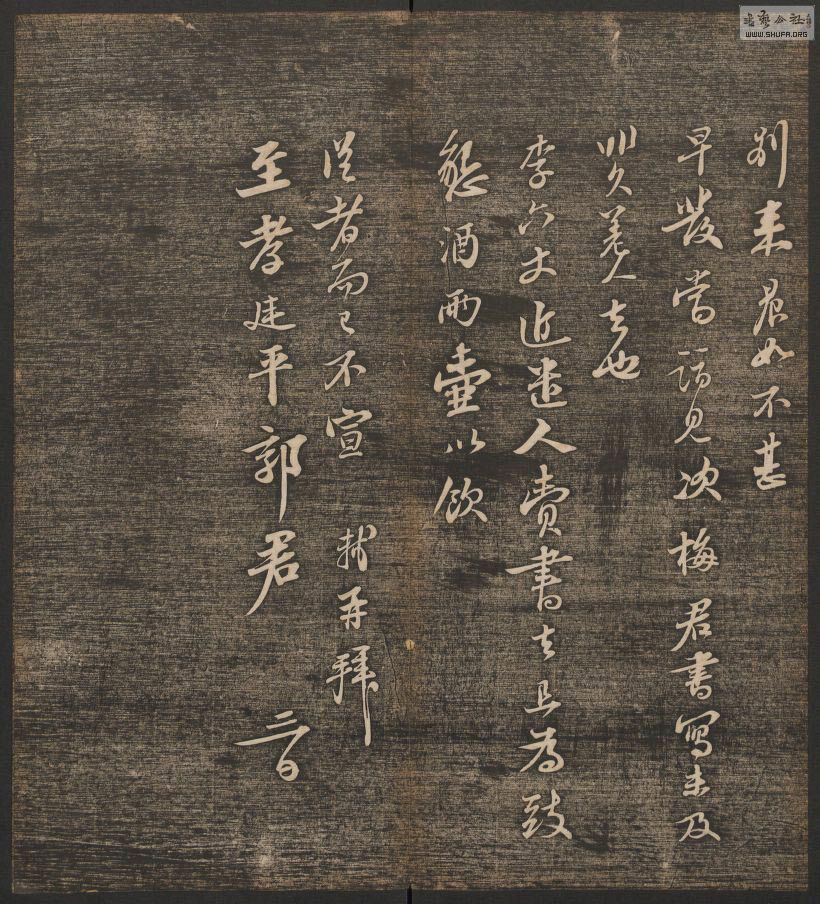 別來眠如不甚
早發當話見次梅君書寫未及
人去也
李六丈近遣人賫書去且為致
懇酒兩壺以飲
從者而已不宣 軾再拜
至孝廷平郭君 六日
書藝公社
WWW.SHUFA.ORG